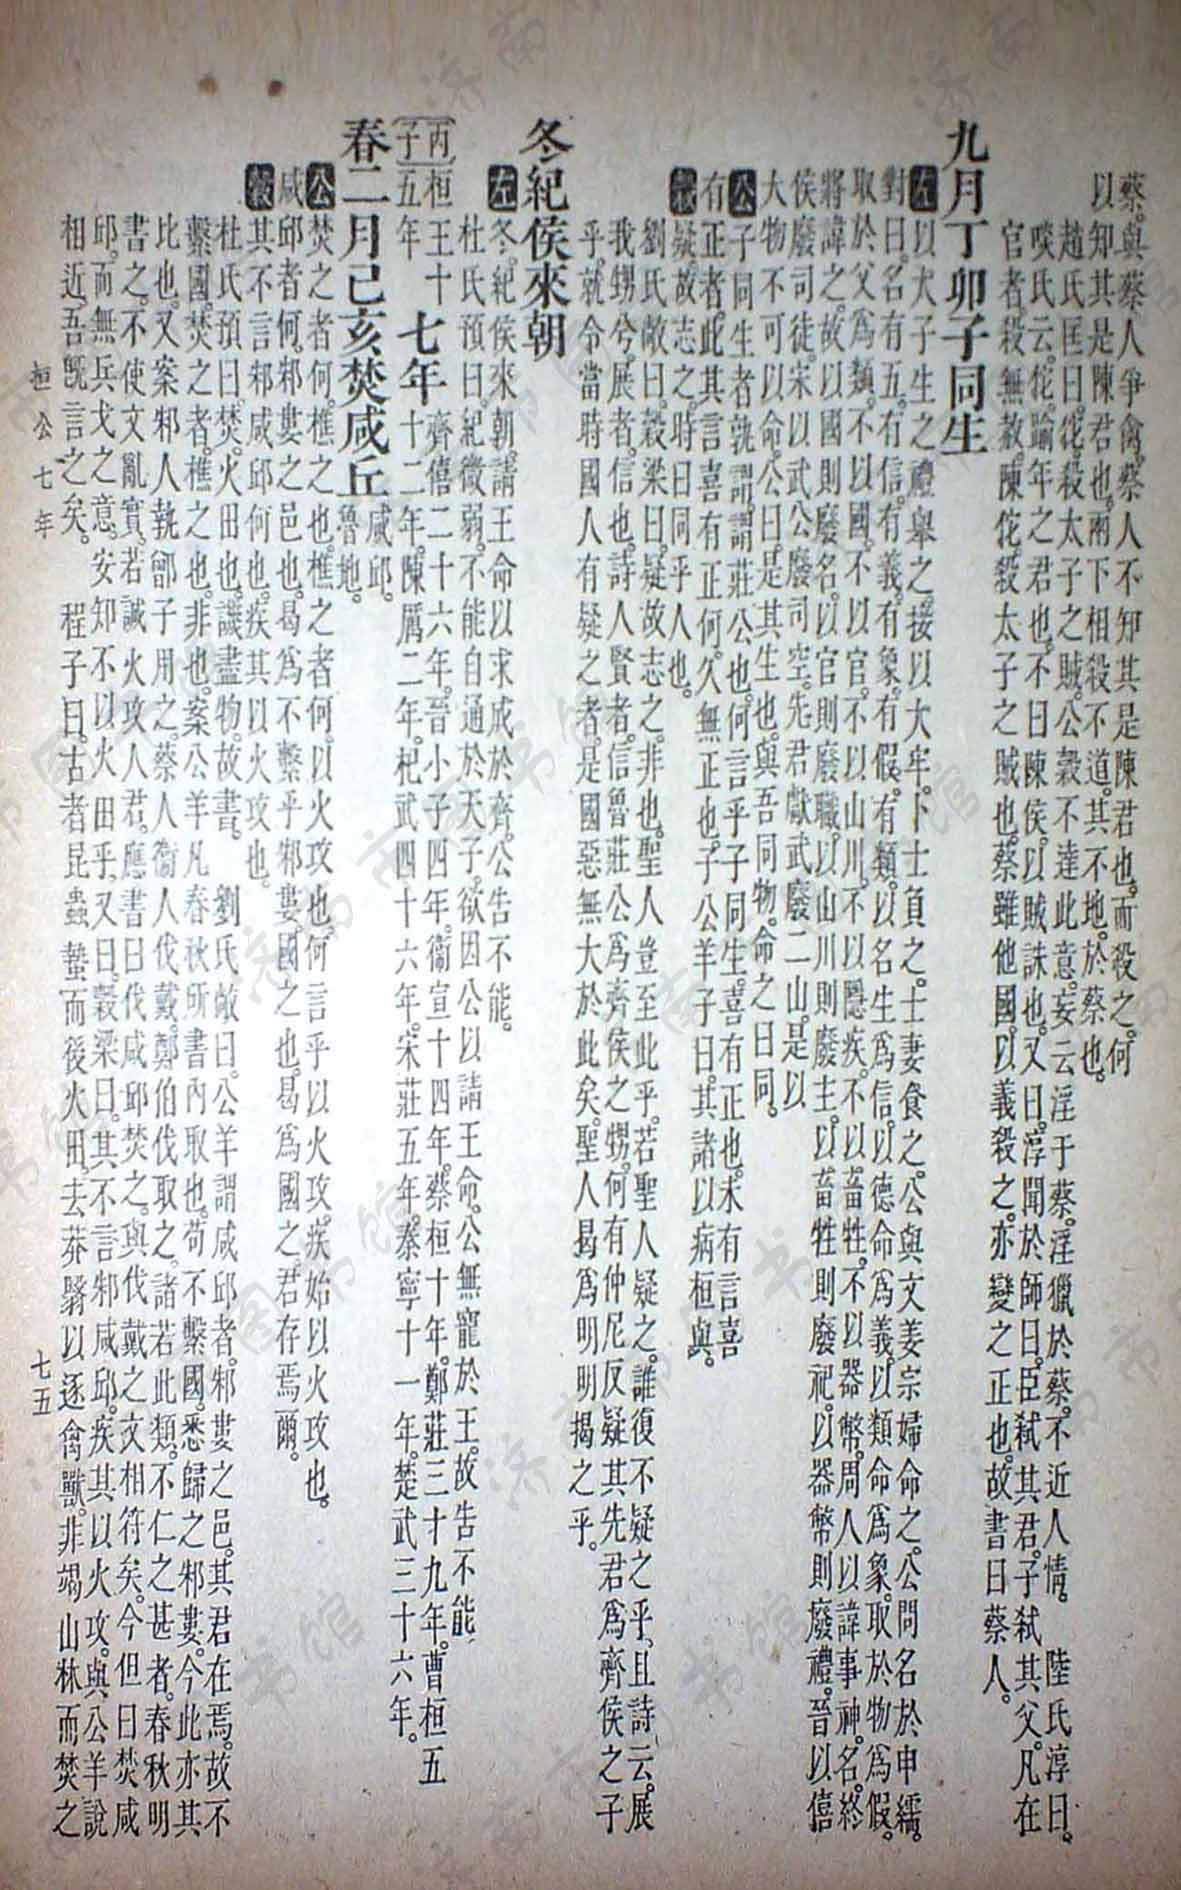 蔡。與蔡人爭禽。蔡人不知其是陳君也。而殺之。何
以知其是陳君也。兩下相殺不道。其不地。於蔡也。
趙氏匡曰。佗。殺太子之賊。公穀不達此意。妄云淫于蔡。淫獵於蔡。不近人情。 陸氏淳曰。
啖氏云。佗。踰年之君也。不曰陳侯。以賊誅也。又曰。淳聞於師曰。臣弒其君。子弒其父。凡在
官者。殺無赦。陳佗。殺太子之賊也。蔡雖他國。以義殺之。亦變之正也。故書曰蔡人。
九月丁卯子同生
左以大子生之禮舉之。接以大牢。卜士負之。士妻食之。公與文姜宗婦命之。公問名於申繻。
對曰。名有五。有信。有義。有象。有假。有類。以名生爲信。以德命爲義。以類命爲象。取於物爲假。
取於父爲類。不以國。不以官。不以山川。不以隱疾。不以畜牲。不以器幣。周人以諱事神。名。終
將諱之。故以國則廢名。以官則廢職。以山川則廢主。以畜牲則廢祀。以器幣則廢禮。晉以僖
侯廢司徒。宋以武公廢司空。先君獻武廢二山。是以
大物不可以命。公曰。是其生也。與吾同物。命之曰同。
公子同生者孰謂。謂莊公也。何言乎子同生。喜有正也。未有言喜
有正者。此其言喜有正何。久無正也。子公羊子曰。其諸以病桓與。
穀疑。故志之。時曰同乎人也。
劉氏敞曰。穀梁曰。疑故志之。非也。聖人豈至此乎。若聖人疑之。誰復不疑之乎、且詩云。展
我甥兮。展者。信也。詩人賢者。信魯莊公爲齊侯之甥。何有仲尼反疑其先君爲齊侯之子
乎。就令當時國人有疑之者。是國惡無大於此矣。聖人曷爲明明揭之乎。
冬紀侯來朝
左冬。紀侯來朝。請王命以求成於齊。公告不能。
杜氏預曰。紀微弱。不能自通於天子。欲因公以請王命。公無寵於王。故告不能、
丙子 桓王十五年 七年 齊僖二十六年。晉小子四年。衞宣十四年。蔡桓十年。鄭莊三十九年。曹桓五
十二年。陳厲二年。杞武四十六年。宋莊五年。秦寧十一年。楚武三十六年。
春二月己亥焚咸丘 咸邱。魯地。
公焚之者何。樵之也。樵之者何。以火攻也。何言乎以火攻。疾始以火攻也。
咸邱者何。邾婁之邑也。曷爲不繫乎邾婁。國之也。曷爲國之。君存焉爾。
穀其不言邾咸邱何也。疾其以火攻也。
杜氏預曰。焚。火田也。譏盡物。故書。 劉氏敞曰。公羊謂咸邱者。邾婁之邑。其君在焉。故不
繫國。焚之者。樵之也。非也。案公羊凡春秋所書內取也。苟不繫國。悉歸之邾婁。今此亦其
比也。又案邾人執鄫子用之。蔡人衞人伐戴。鄭伯伐取之。諸若此類。不仁之甚者。春秋明
書之。不使文亂實。若誠火攻人君。應書曰伐咸邱焚之。與伐戴之文相符矣。今但曰焚咸
邱。而無兵戈之意。安知不以火田乎。又曰。穀梁曰。其不言邾咸邱。疾其以火攻。與公羊說
相近。吾旣言之矣。 程子曰。古者昆蟲蟄而後火田。去莽翳以逐禽獸。非竭山林而焚之
桓公七年
七五